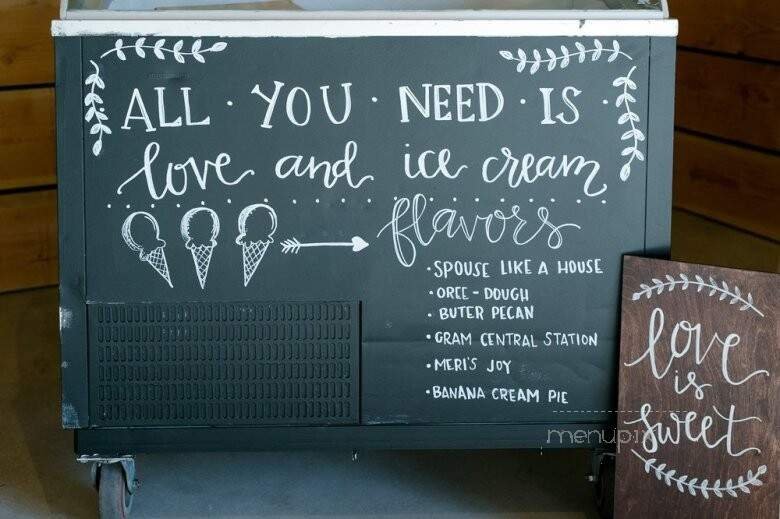 ALL · YOU · NEED · IS ·
love and ice cream
flavors
· SPOUSE LIKE A HOUSE
· OREE - DOUGH
· BUTER PECAN
· GRAM CENTRAL STATION
· MERI'S JOY
· BANANA CREAM PIE
love
is
sweet